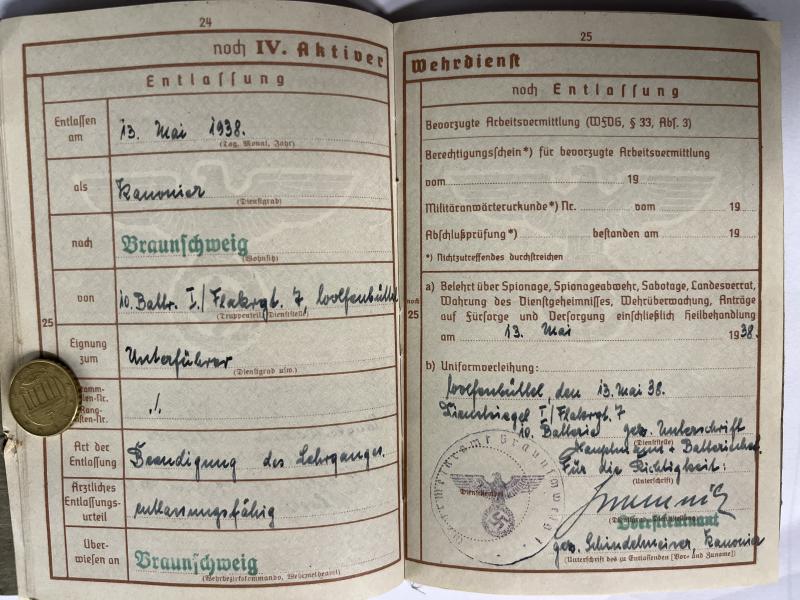 24
noch IV. Aktiver
Entlassung
Entlassen am
13. Mai 1938.
(Tag, Monat, Jahr)
als
Kanonier
(Dienstgrad)
nach
Braunschweig
(Wohnsitz)
von
10. Battr. I./Flakrgt. 7, Wolfenbüttel
(Truppenteil, Dienststelle)
25
Eignung zum
Unterführer
(Dienstgrad usw.)
./.
Art der Entlassung
Beendigung des Lehrganges.
Ärztliches Entlassungs-
urteil
entlassungsfähig
Über-
wiesen an
Braunschweig
(Wehrbezirkskommando, Wehrmeldeamt)
25
Wehrdienst
noch Entlassung
Bevorzugte Arbeitsvermittlung (WFVG, § 33, Abs. 3)
Berechtigungsschein*) für bevorzugte Arbeitsvermittlung
vom 19
Militäranwärterurkunde*) Nr. vom 19
Abschlußprüfung*) bestanden am 19
*) Nichtzutreffendes durchstreichen
noch 25
a) Belehrt über Spionage, Spionageabwehr, Sabotage, Landesverrat,
Wahrung des Dienstgeheimnisses, Wehrüberwachung, Anträge
auf Fürsorge und Versorgung einschließlich Heilbehandlung
am 13. Mai 1938.
b) Uniformverleihung:
Wolfenbüttel, den 13. Mai 38.
Dienstsiegel I/Flakrgt. 7
10. Batterie gez. Unterschrift
(Dienststelle)
Hauptmann u. Batteriechef.
Für die Richtigkeit:
(Unterschrift)
Dienststempel
Wehrmeldeamt Braunschweig
Oberstleutnant
gez. Schindelmeiser, Kanonier
(Unterschrift des zu Entlassenden [Vor- und Zuname])